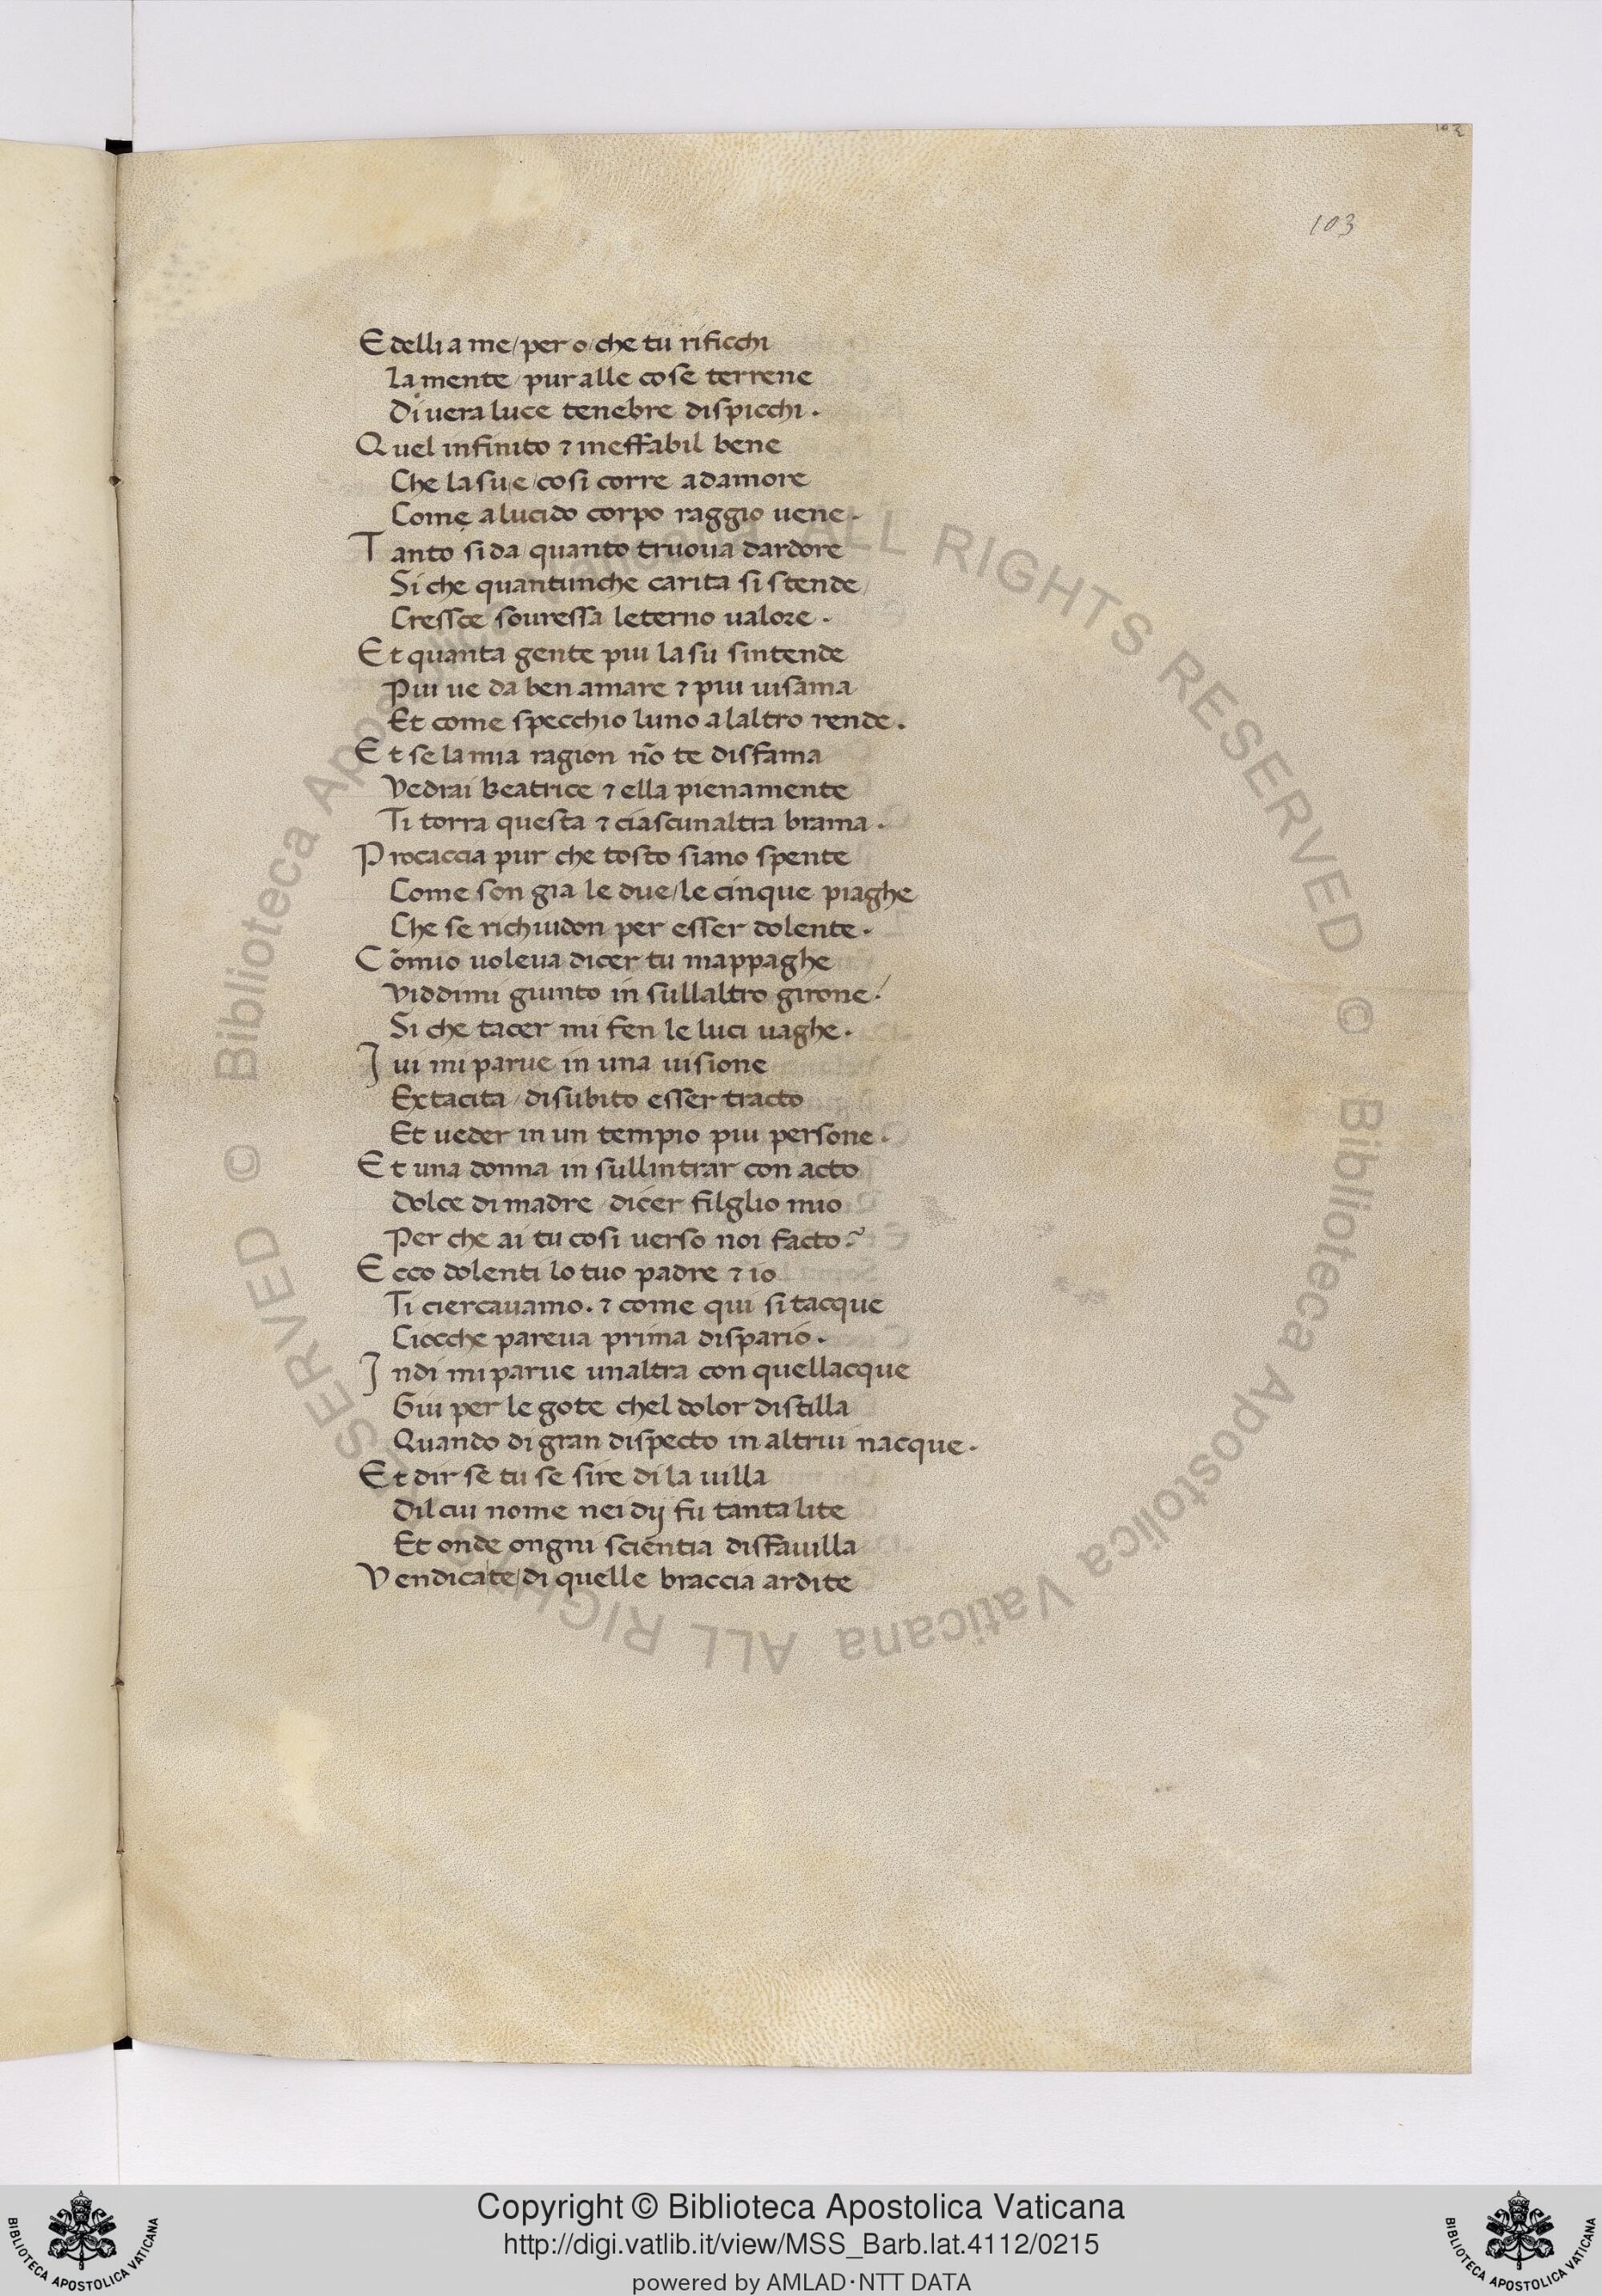 102
103
E delli a me/per o/che tu rificchi
La mente/pur alle cose terrene
Di vera luce tenebre dispicchi.
Quel infinito ⁊ ineffabil bene
Che lasu/e/cosi corre adamore
Come a lucido corpo raggio vene.
Tanto si da/quanto truova dardore
Si che quantunche carita si stende/
Cressce sovressa leterno valore.
Et quanta gente piu lasu sintende
Piu ve da ben amare ⁊ piu visama
Et come specchio luno alaltro rende.
Et se la mia ragion nõ te disfama
Vedrai beatrice ⁊ ella pienamente
Ti torra questa ⁊ ciascunaltra brama.
Procaccia pur che tosto siano spente
Come son gia le due/le cinque piaghe
Che se richiudon per esser dolente.
Cõmio voleva dicer tu mappaghe
Viddimi giunto in sullaltro girone/
Si che tacer mi fen le luci vaghe.
Ivi mi parve in una visione
Extacita/disubito esser tracto
Et veder in un tempio piu persone.
Et una donna in sullintrar con acto
Dolce di madre/dicer filglio mio
Per che ai tu cosi verso noi facto?
Ecco dolenti lo tuo padre ⁊ io
Ti ciercavamo. ⁊ come qui si tacque
Ciocche pareva prima dispario.
Indi mi parve unaltra con quellacque
Giu per le gote chel dolor distilla
Quando di gran dispecto in altrui nacque.
Et dir se tu se sire di la villa
Dil cui nome nei dij fu tanta lite
Et onde ongni scientia disfavilla
Vendicate/di quelle braccia ardite
© Biblioteca Apostolica Vaticana ALL RIGHTS RESERVED
© Biblioteca Apostolica Vaticana ALL RIGHTS RESERVED
Copyright © Biblioteca Apostolica Vaticana
http://digi.vatlib.it/view/MSS_Barb.lat.4112/0215
powered by AMLAD·NTT DATA
BIBLIOTECA APOSTOLICA VATICANA
BIBLIOTECA APOSTOLICA VATICANA